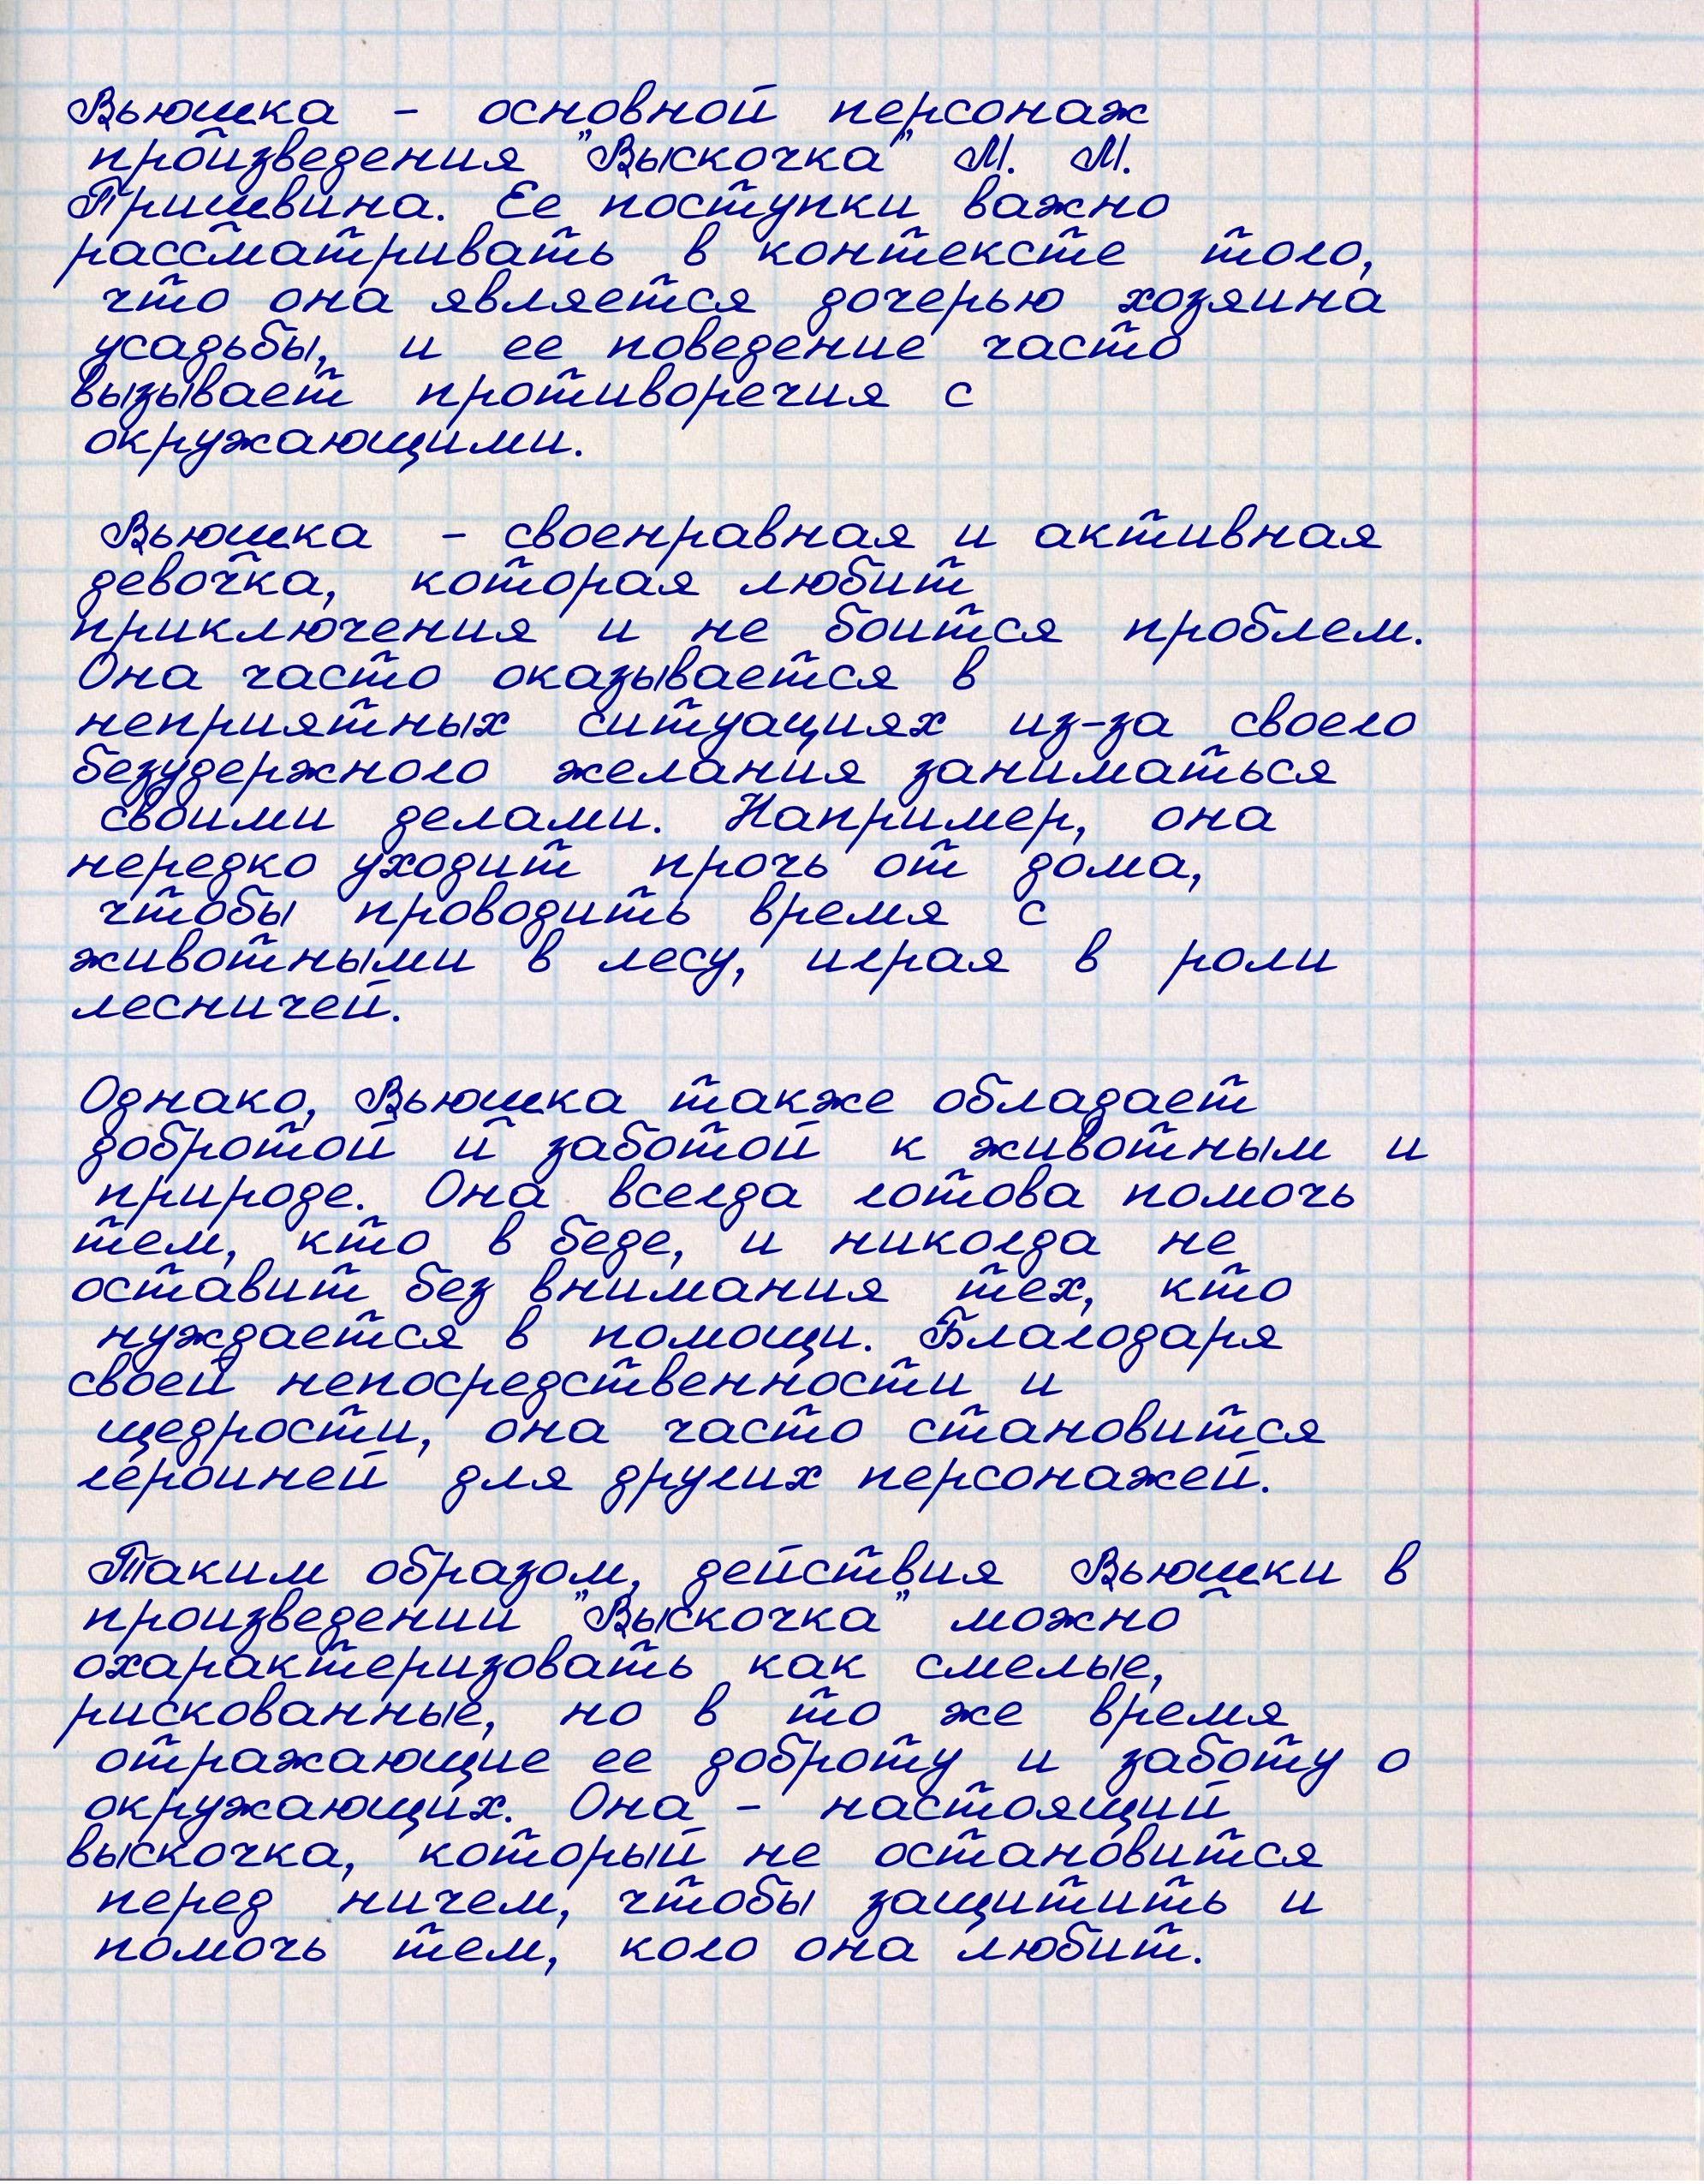 Вьюшка - основной персонаж
произведения "Выскочка" М. М.
Пришвина. Ее поступки важно
рассматривать в контексте того,
что она является дочерью хозяина
усадьбы, и ее поведение часто
вызывает противоречия с
окружающими.
Вьюшка - своенравная и активная
девочка, которая любит
приключения и не боится проблем.
Она часто оказывается в
неприятных ситуациях из-за своего
безудержного желания заниматься
своими делами. Например, она
нередко уходит прочь от дома,
чтобы проводить время с
животными в лесу, играя в роли
лесничей.
Однако, Вьюшка также обладает
добротой и заботой к животным и
природе. Она всегда готова помочь
тем, кто в беде, и никогда не
оставит без внимания тех, кто
нуждается в помощи. Благодаря
своей непосредственности и
щедрости, она часто становится
героиней для других персонажей.
Таким образом, действия Вьюшки в
произведении "Выскочка" можно
охарактеризовать как смелые,
рискованные, но в то же время
отражающие ее доброту и заботу о
окружающих. Она - настоящий
выскочка, который не остановится
перед ничем, чтобы защитить и
помочь тем, кого она любит.